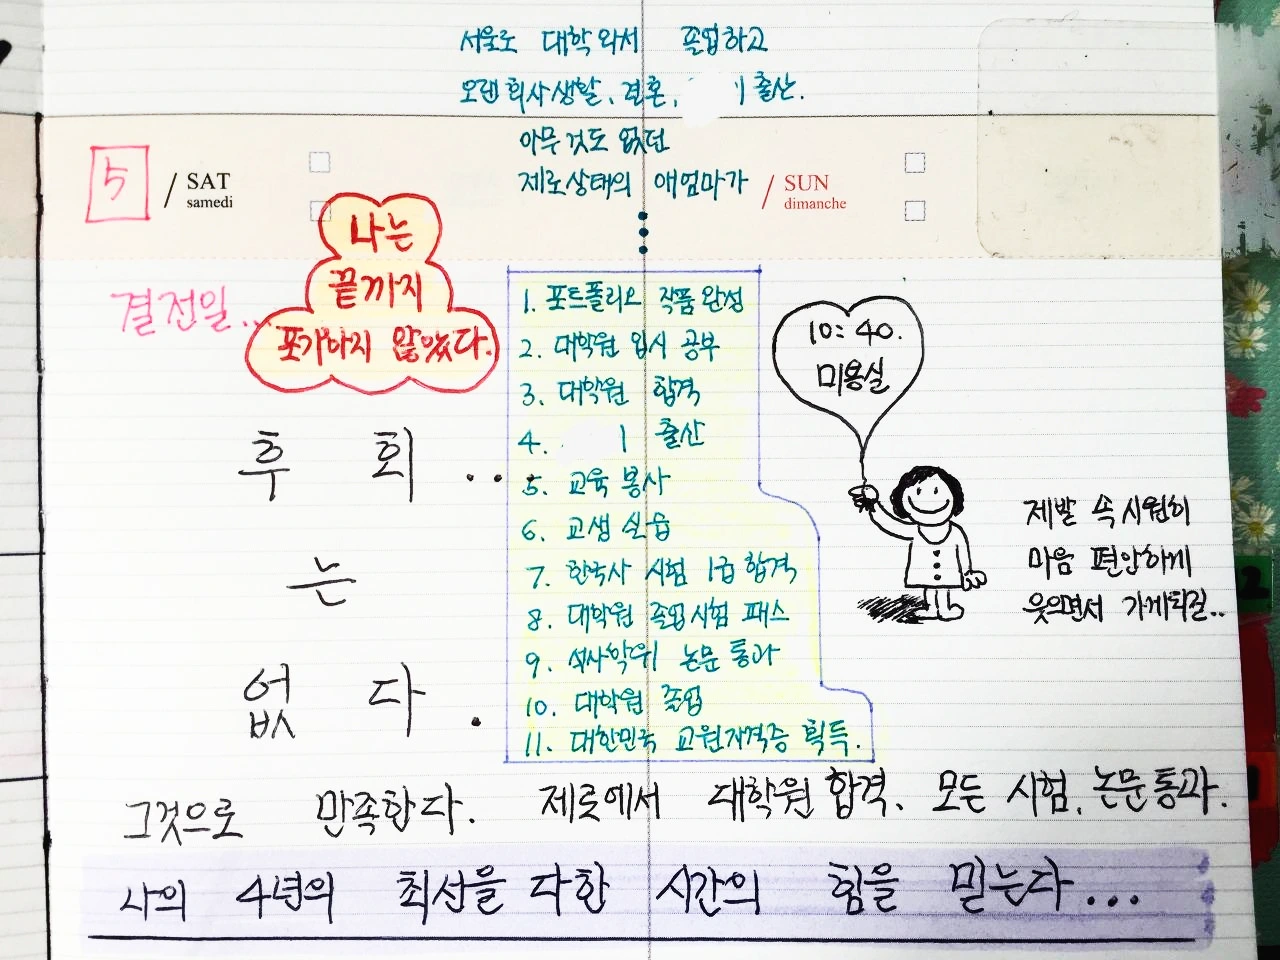 서울로 대학 와서 졸업하고
오랜 회사생활, 결혼, 출산.
아무것도 없던
제로상태의 애엄마가
5 / SAT
samedi
/ SUN
dimanche
결전일...
나는
끝까지
포기하지 않았다.
1. 포트폴리오 작품 완성
2. 대학원 입시 공부
3. 대학원 합격
4. 출산
5. 교육 봉사
6. 교생 실습
7. 한국사 시험 1급 합격
8. 대학원 졸업시험 패스
9. 석사학위 논문 통과
10. 대학원 졸업
11. 대한민국 교원자격증 획득.
10:40.
미용실
제발 속 시원히
마음 편안하게
웃으면서 가게되길..
후회..
는
없다.
그것으로 만족한다. 제로에서 대학원 합격. 모든 시험, 논문통과.
나의 4년의 최선을 다한 시간의 힘을 믿는다...
2
1